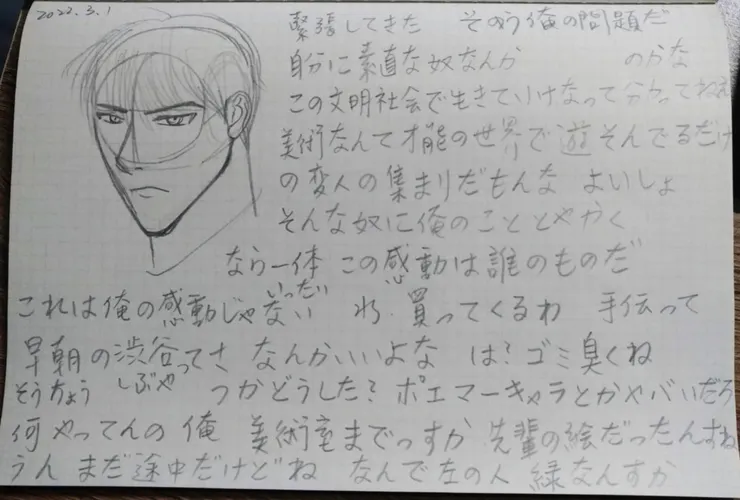 2022.3.1
緊張してきた そのよう俺の問題だ
自分に素直な奴なんか のかな
この文明社会で生きていけなって分かってねえ
美術なんて才能の世界で遊そんでるだけ
の変人の集まりだもんな よいしょ
そんな奴に俺のこととやかく
なら一体 この感動は誰のものだ
いったい
これは俺の感動じゃない 買ってくるわ 手伝って
早朝の渋谷ってさ なんかいいよな は?ゴミ臭くね
そうちょう しぶや つかどうした?ポエマーキャラとかヤバいだろ
何やってんの 俺 美術室までっすか 先輩の絵だったんすね
うん まだ途中だけどね なんで左の人 緑なんすか